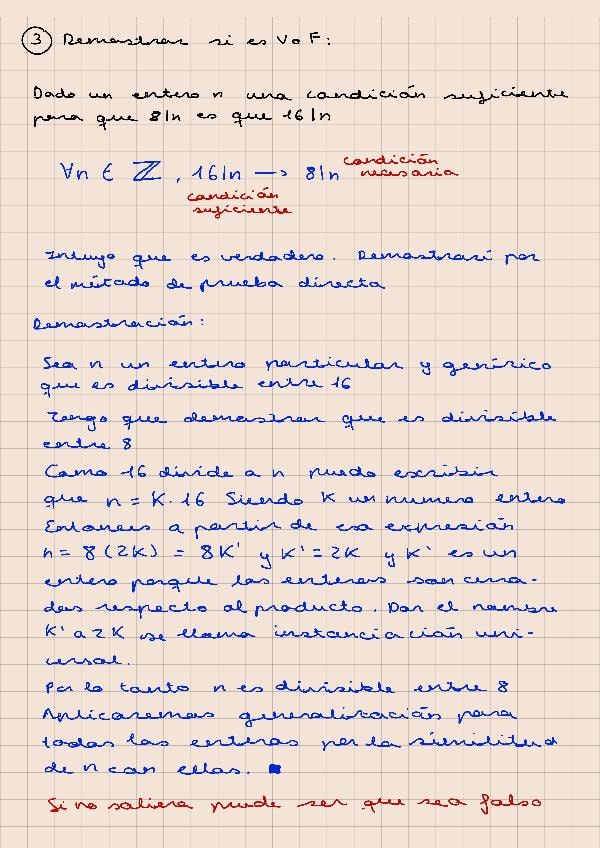 3 Demostrar si es V o F:
Dado un entero n una condición suficiente
para que 8|n es que 16|n
∀n ∈ ℤ, 16|n → 8|n condición necesaria
condición
suficiente
Intuyo que es verdadero. Demostraré por
el método de prueba directa
Demostración:
Sea n un entero particular y genérico
que es divisible entre 16
Tengo que demostrar que es divisible
entre 8
Como 16 divide a n puedo escribir
que n = K·16 Siendo K un numero entero
Entonces a partir de esa expresión
n = 8(2K) = 8K' y K' = 2K y K' es un
entero porque los enteros son cerra-
dos respecto al producto. Dar el nombre
K' a 2K se llama instanciación uni-
versal.
Por lo tanto n es divisible entre 8
Aplicaremos generalización para
todos los enteros por la similitud
de n con ellos. ■
Si no saliera puede ser que sea falso